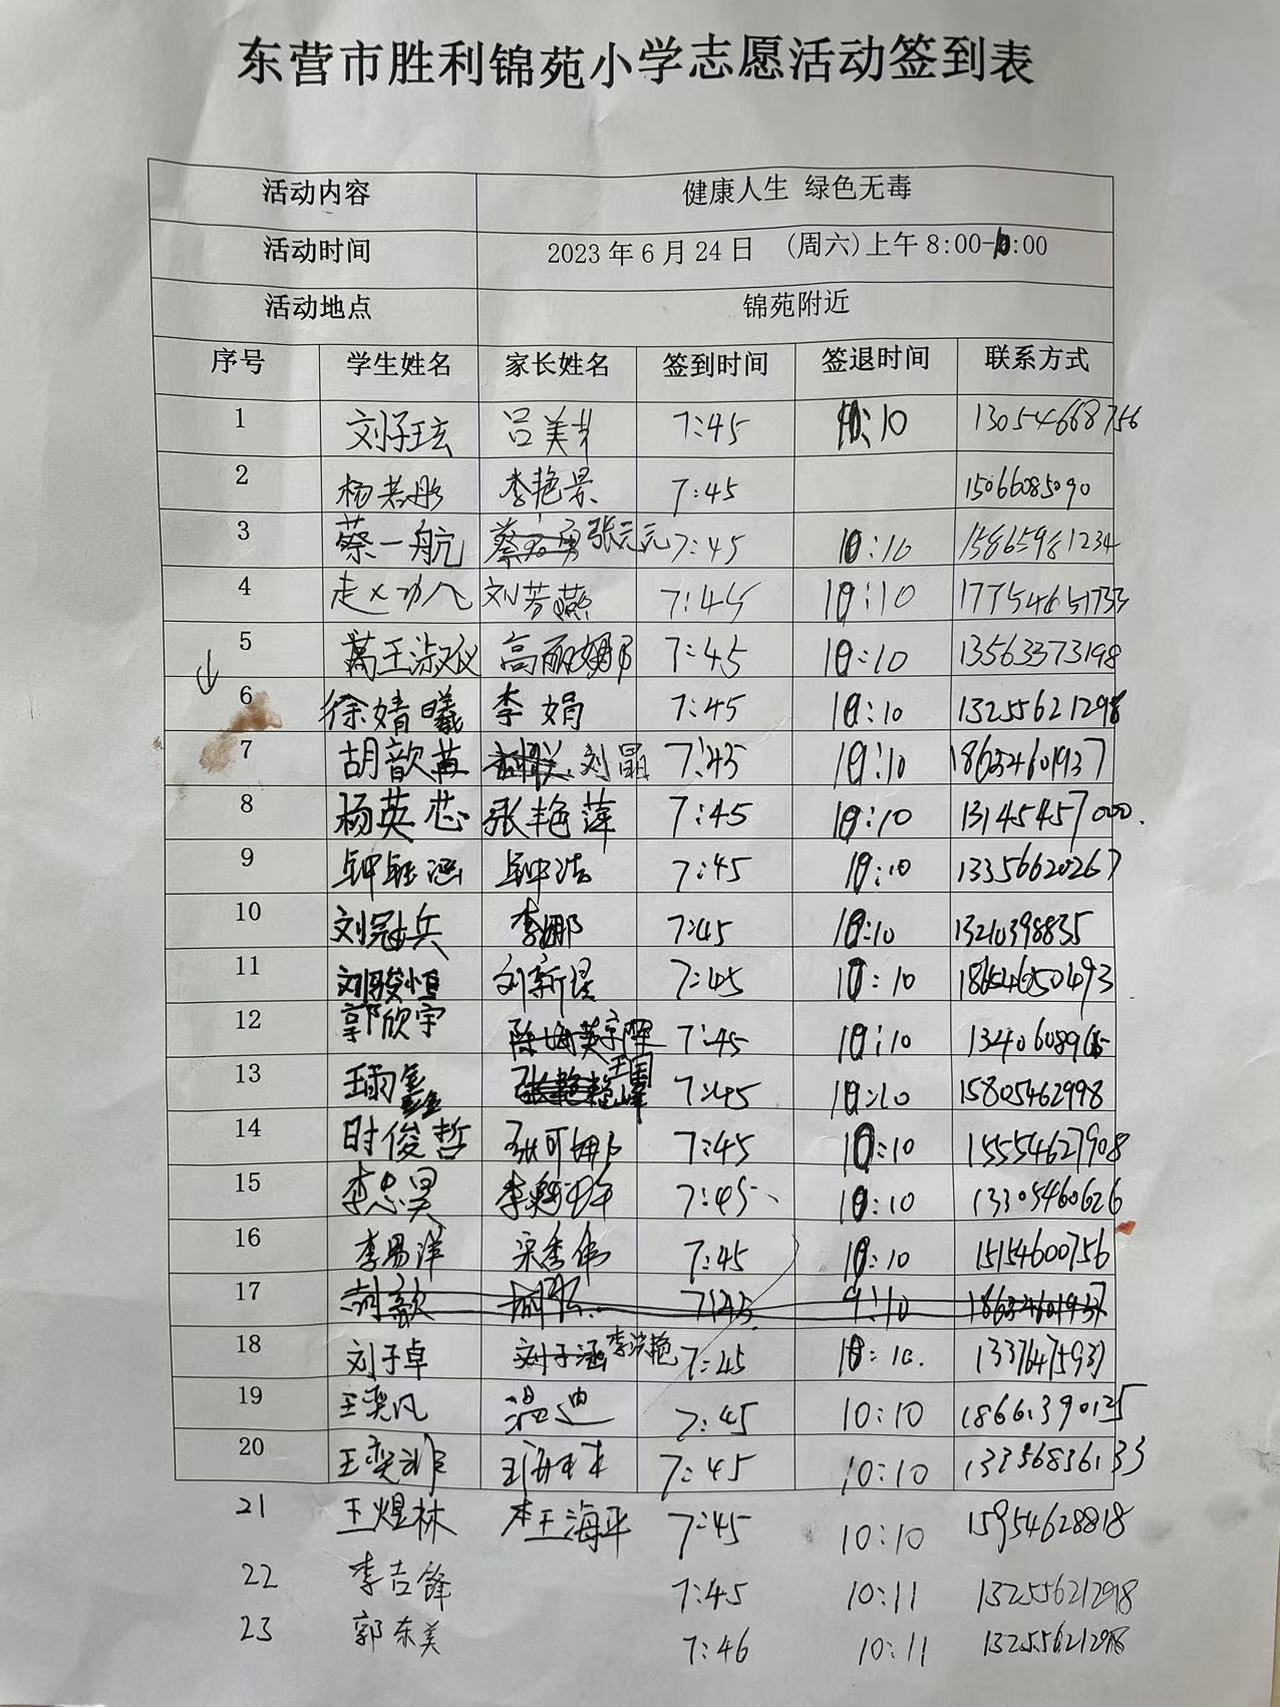 东营市胜利锦苑小学志愿活动签到表
活动内容 健康人生 绿色无毒
活动时间 2023年6月24日 (周六)上午8:00-10:00
活动地点 锦苑附近
序号 学生姓名 家长姓名 签到时间 签退时间 联系方式
1 刘子玹 吕美 7:45 10:10 13054668756
2 杨若彤 李艳景 7:45 15066085090
3 蔡一航 张元元 7:45 10:10 15865981234
4 刘芳燕 7:45 10:10 17754651733
5 王淑仪 高丽娜 7:45 10:10 13563373198
6 徐婧曦 李娟 7:45 10:10 13255621298
7 胡歆苒 刘晶 7:45 10:10 18654601937
8 杨英芯 张艳萍 7:45 10:10 13145457000.
9 钟钰涵 钟浩 7:45 10:10 13356620267
10 刘冠兵 李娜 7:45 10:10 13210398835
11 刘骏恒 刘新星 7:45 10:10 18654650493
12 郭欣宇 7:45 10:10
13 王国峰 7:45 10:10 15805462998
14 时俊哲 张可娜 7:45 10:10 15554627908
15 李忠昊 7:45 10:10 13305460626
16 李易洋 宋秀伟 7:45 10:10 15154600756
17 7:45 9:10 18654601937
18 刘子卓 刘子涵 李洪艳 7:45 10:10. 13376475937
19 王奕凡 温迪 7:45 10:10 18661390125
20 王奕非 7:45 10:10 13356836133
21 王煜林 王海平 7:45 10:10 15954628818
22 李吉锋 7:45 10:11 13255621298
23 郭东美 7:46 10:11 13255621298